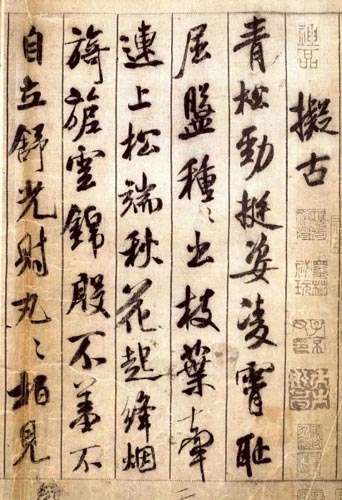 擬古
青松勁挺姿凌霄恥
屈盤種〻出枝葉牽
連上松端秋花起絳烟
旖旎雲錦殷不羞不
自立舒光射丸〻柏見